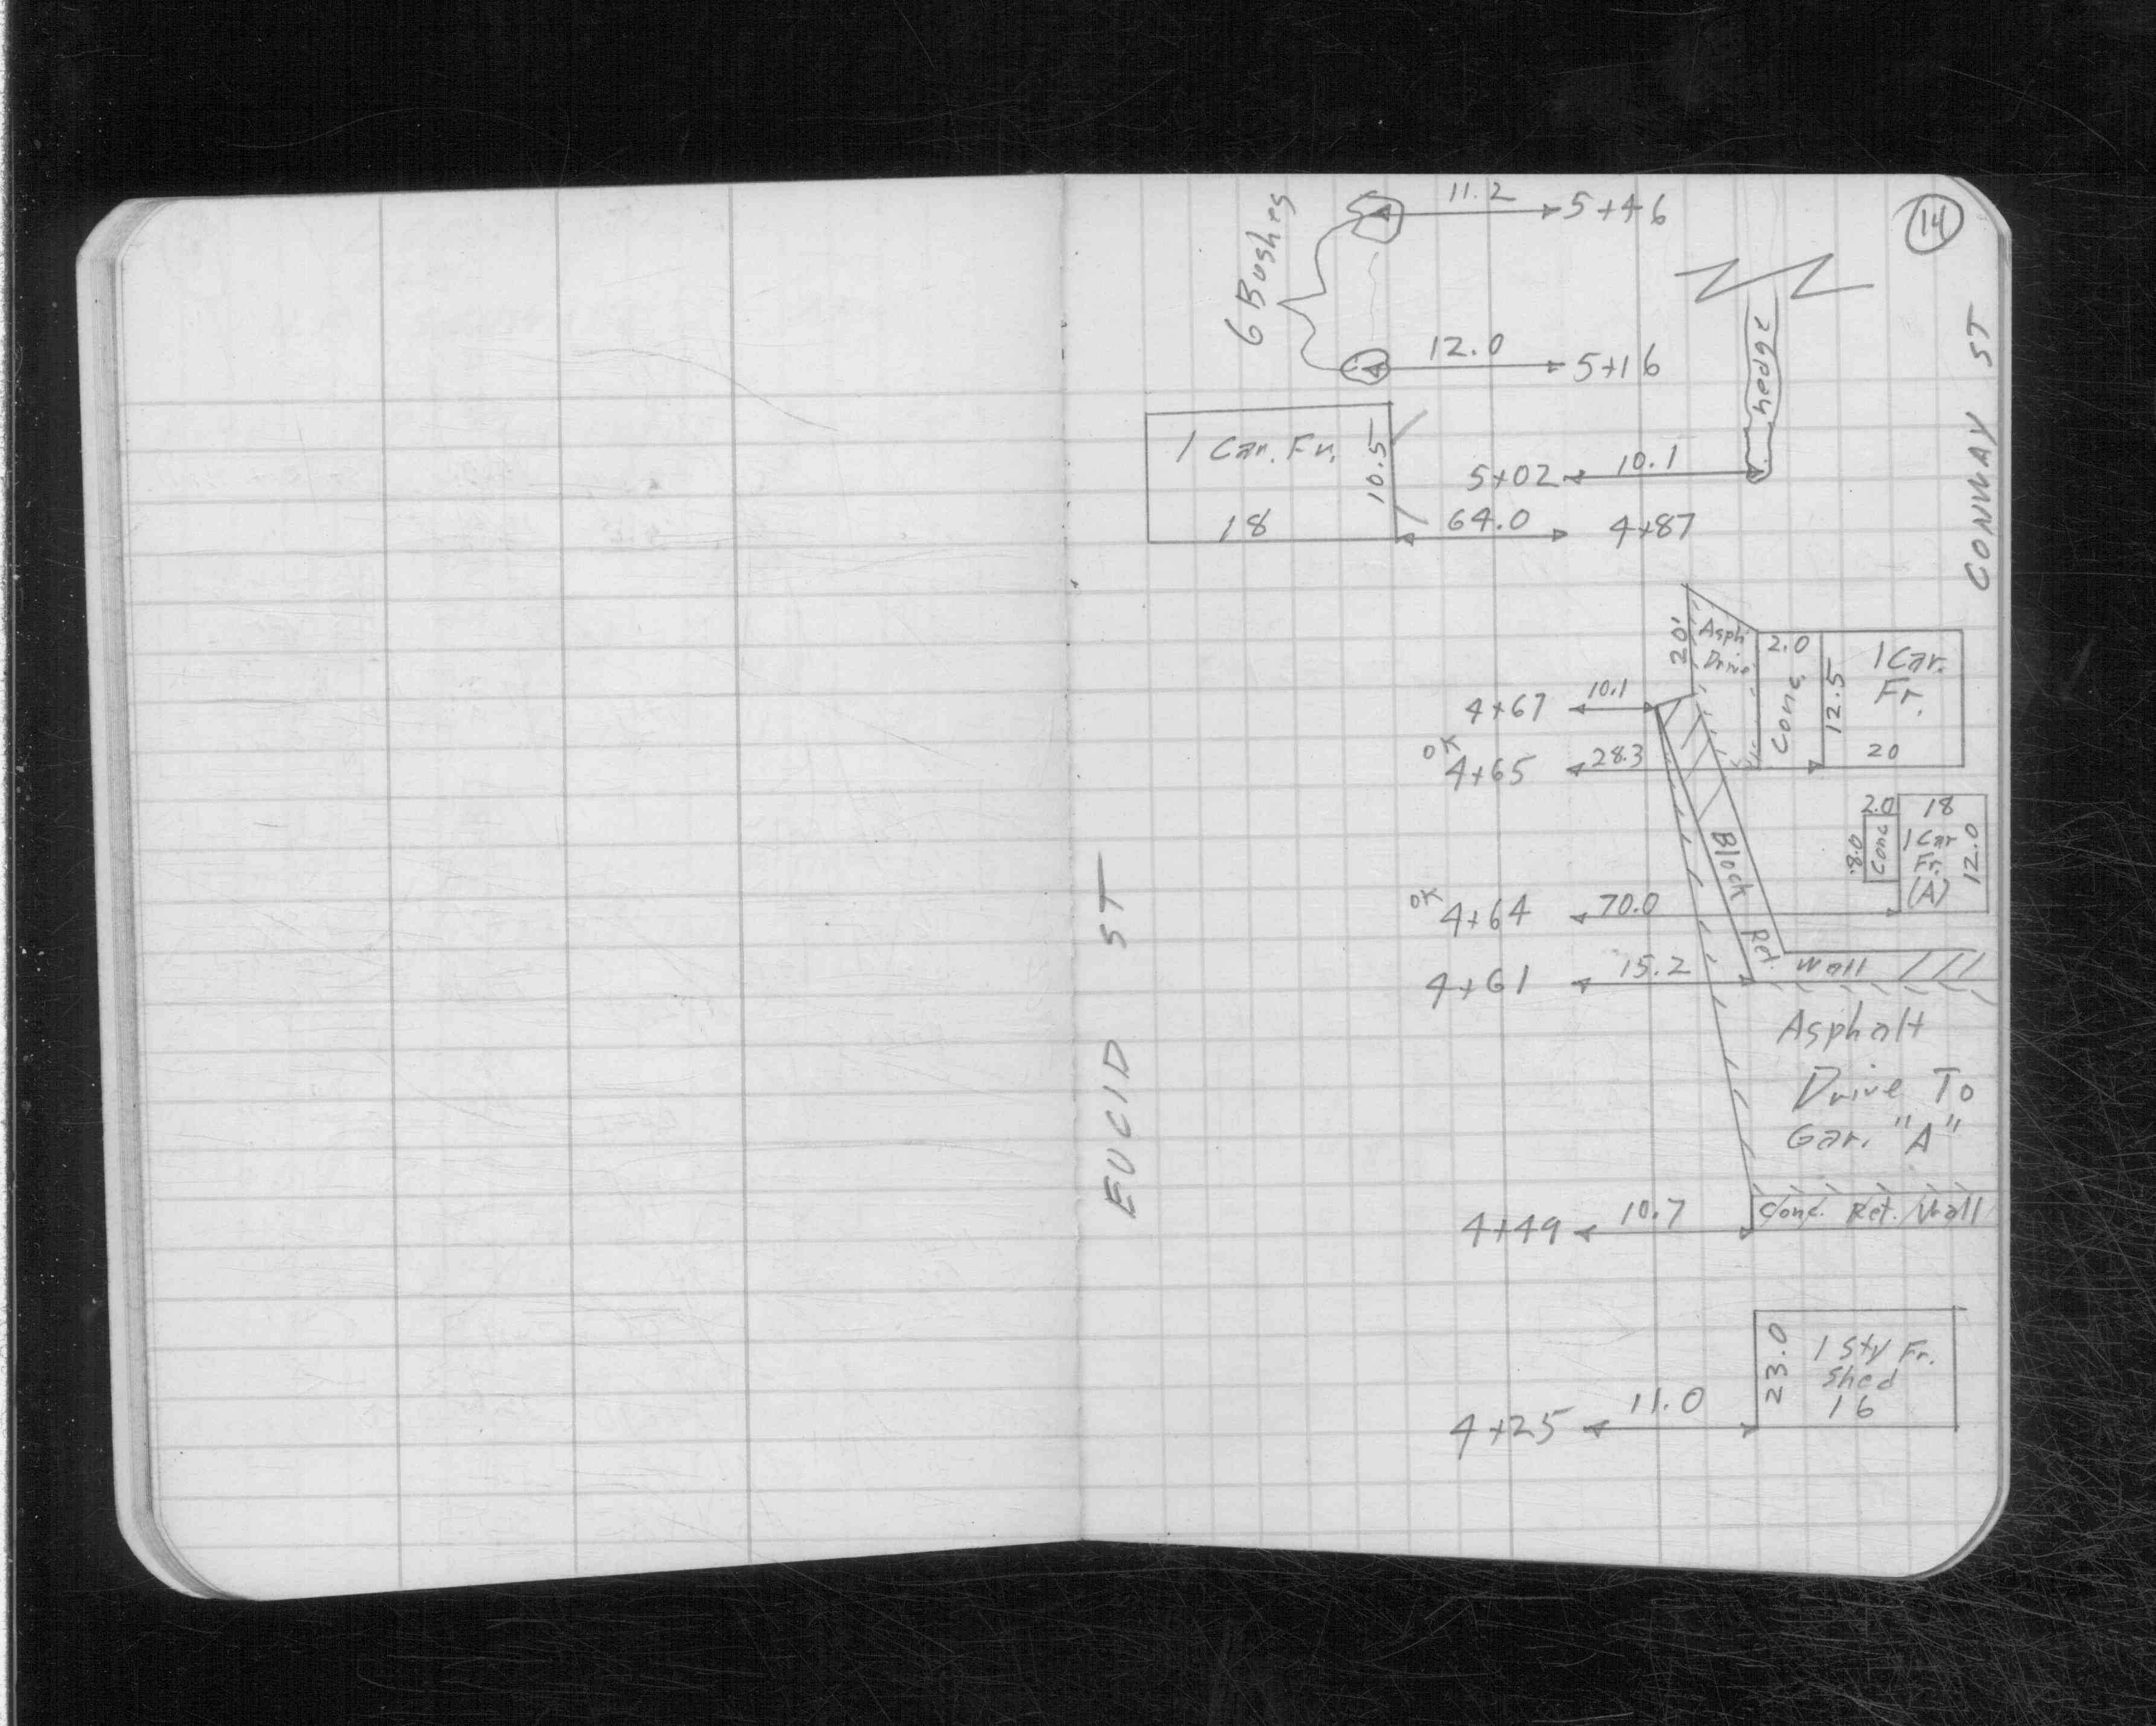 14
11.2 5+46
6 Bushes
12.0 5+16
hedge
CONWAY ST
1 Car. Fr. 10.5
18
5+02 10.1
64.0 4+87
20'
Asph.
Drive
2.0
Conc.
12.5
1 Car.
Fr.
20
4+67 10.1
OK
4+65 28.3
2.0
8.0
Conc
18
1 Car
Fr.
(A)
12.0
OK
4+64 70.0
Block Ret. Wall
4+61 15.2
Asphalt
Drive To
Gar. "A"
EUCID ST
Conc. Ret. Wall
4+49 10.7
23.0
1 Sty Fr.
Shed
16
4+25 11.0